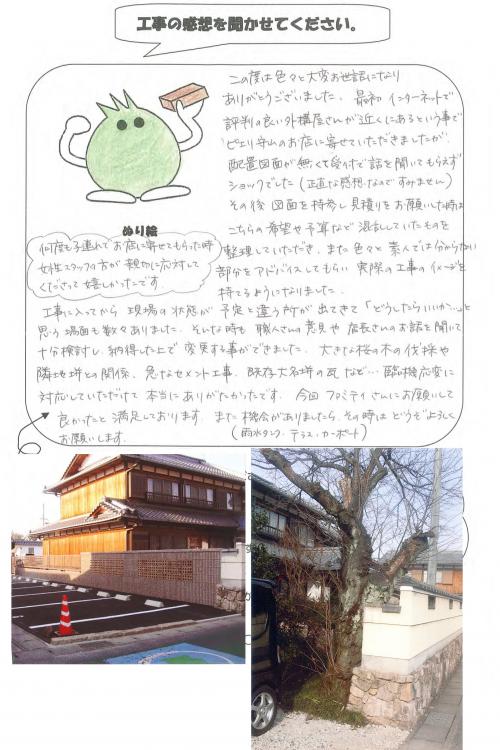 工事の感想を聞かせてください。
この度は色々と大変お世話になり
ありがとうございました。最初インターネットで
評判の良い外構屋さんが近くにあるという事で
ピエリ守山のお店に寄せていただきましたが、
配置図面が無くて受付で話を聞いてもらえず
ショックでした(正直な感想なのですみません)
その後図面を持参し見積りをお願いした時は
こちらの希望や予算など混乱していたものを
整理していただき、また色々と素人では分からない
部分をアドバイスしてもらい実際の工事のイメージを
持てるようになりました。
ぬり絵
何度も子連れでお店に寄せてもらった時
女性スタッフの方が親切に応対して
くださって嬉しかったです。
工事に入ってから現場の状態が予定と違う所が出てきて「どうしたらいいか…」と
思う場面も数々ありました。そんな時も職人さんの意見や店長さんのお話を聞いて
十分検討し、納得した上で変更する事ができました。大きな桜の木の伐採や
隣地塀との関係、急なセメント工事、既存大名塀の瓦など…臨機応変に
対応していただけて本当にありがたかったです。今回ファミティさんにお願いして
良かったと満足しております。また機会がありましたら、その時はどうぞよろしく
お願いします。
(雨水タンク・テラス・カーポート)